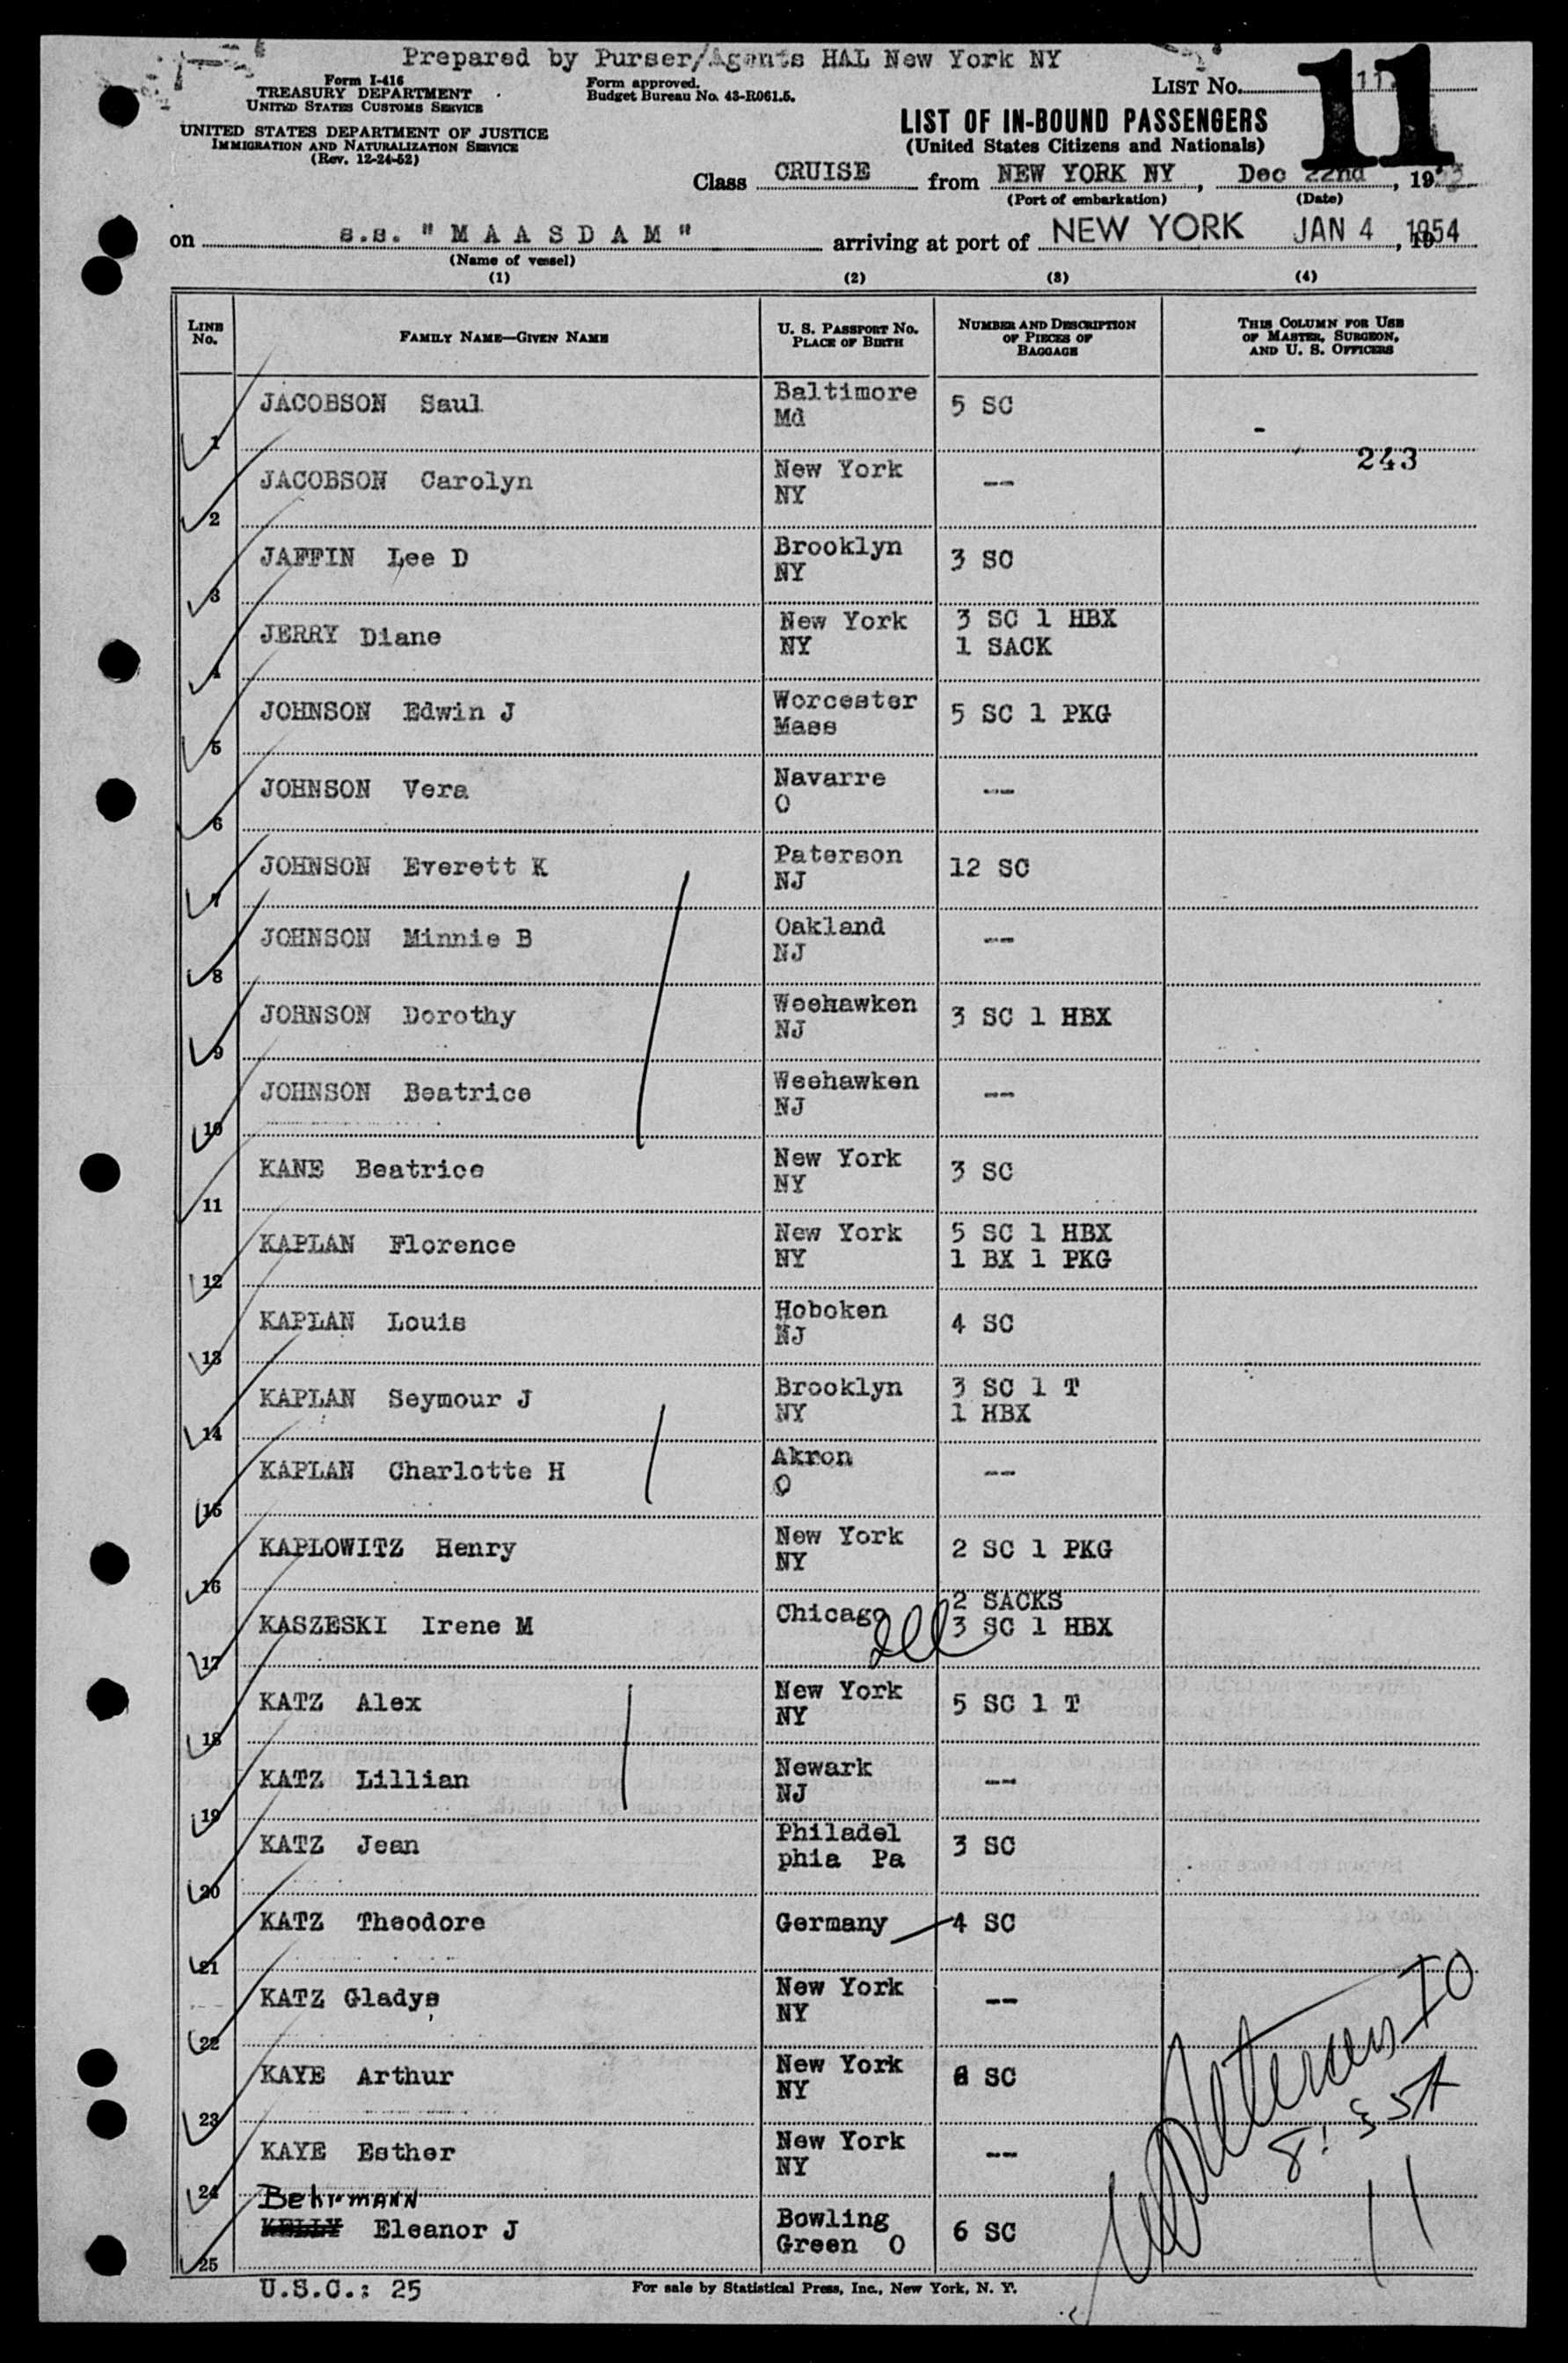 Prepared by Purser/Agents HAL New York NY
Form I-416
TREASURY DEPARTMENT
UNITED STATES CUSTOMS SERVICE
Form approved.
Budget Bureau No. 43-R061.5.
LIST No. 11
11
UNITED STATES DEPARTMENT OF JUSTICE
IMMIGRATION AND NATURALIZATION SERVICE
(Rev. 12-24-52)
LIST OF IN-BOUND PASSENGERS
(United States Citizens and Nationals)
Class CRUISE from NEW YORK NY, Dec 22nd, 1953
(Port of embarkation) (Date)
on s.s. "MAASDAM" arriving at port of NEW YORK JAN 4 1954, 19
(Name of vessel)
(1) (2) (3) (4)
LINE No. FAMILY NAME—GIVEN NAME U. S. PASSPORT No. PLACE OF BIRTH NUMBER AND DESCRIPTION OF PIECES OF BAGGAGE THIS COLUMN FOR USE OF MASTER, SURGEON, AND U. S. OFFICERS
1 JACOBSON Saul Baltimore Md 5 SC -
243
2 JACOBSON Carolyn New York NY --
3 JAFFIN Lee D Brooklyn NY 3 SC
4 JERRY Diane New York NY 3 SC 1 HBX 1 SACK
5 JOHNSON Edwin J Worcester Mass 5 SC 1 PKG
6 JOHNSON Vera Navarre O --
7 JOHNSON Everett K Paterson NJ 12 SC
8 JOHNSON Minnie B Oakland NJ --
9 JOHNSON Dorothy Weehawken NJ 3 SC 1 HBX
10 JOHNSON Beatrice Weehawken NJ --
11 KANE Beatrice New York NY 3 SC
12 KAPLAN Florence New York NY 5 SC 1 HBX 1 BX 1 PKG
13 KAPLAN Louis Hoboken NJ 4 SC
14 KAPLAN Seymour J Brooklyn NY 3 SC 1 T 1 HBX
15 KAPLAN Charlotte H Akron O --
16 KAPLOWITZ Henry New York NY 2 SC 1 PKG
17 KASZESKI Irene M Chicago Ill 2 SACKS 3 SC 1 HBX
18 KATZ Alex New York NY 5 SC 1 T
19 KATZ Lillian Newark NJ --
20 KATZ Jean Philadel phia Pa 3 SC
21 KATZ Theodore Germany 4 SC
22 KATZ Gladys New York NY --
23 KAYE Arthur New York NY SC
24 KAYE Esther New York NY --
Behrmann
25 KELLY Eleanor J Bowling Green O 6 SC
U.S.C.: 25
For sale by Statistical Press, Inc., New York, N. Y.